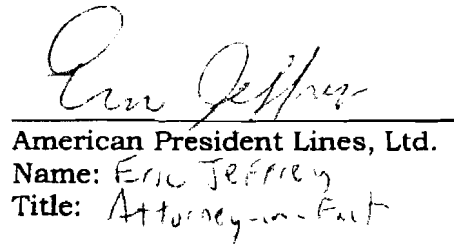 Eric Jeffrey
American President Lines, Ltd.
Name: Eric Jeffrey
Title: Attorney-in-Fact